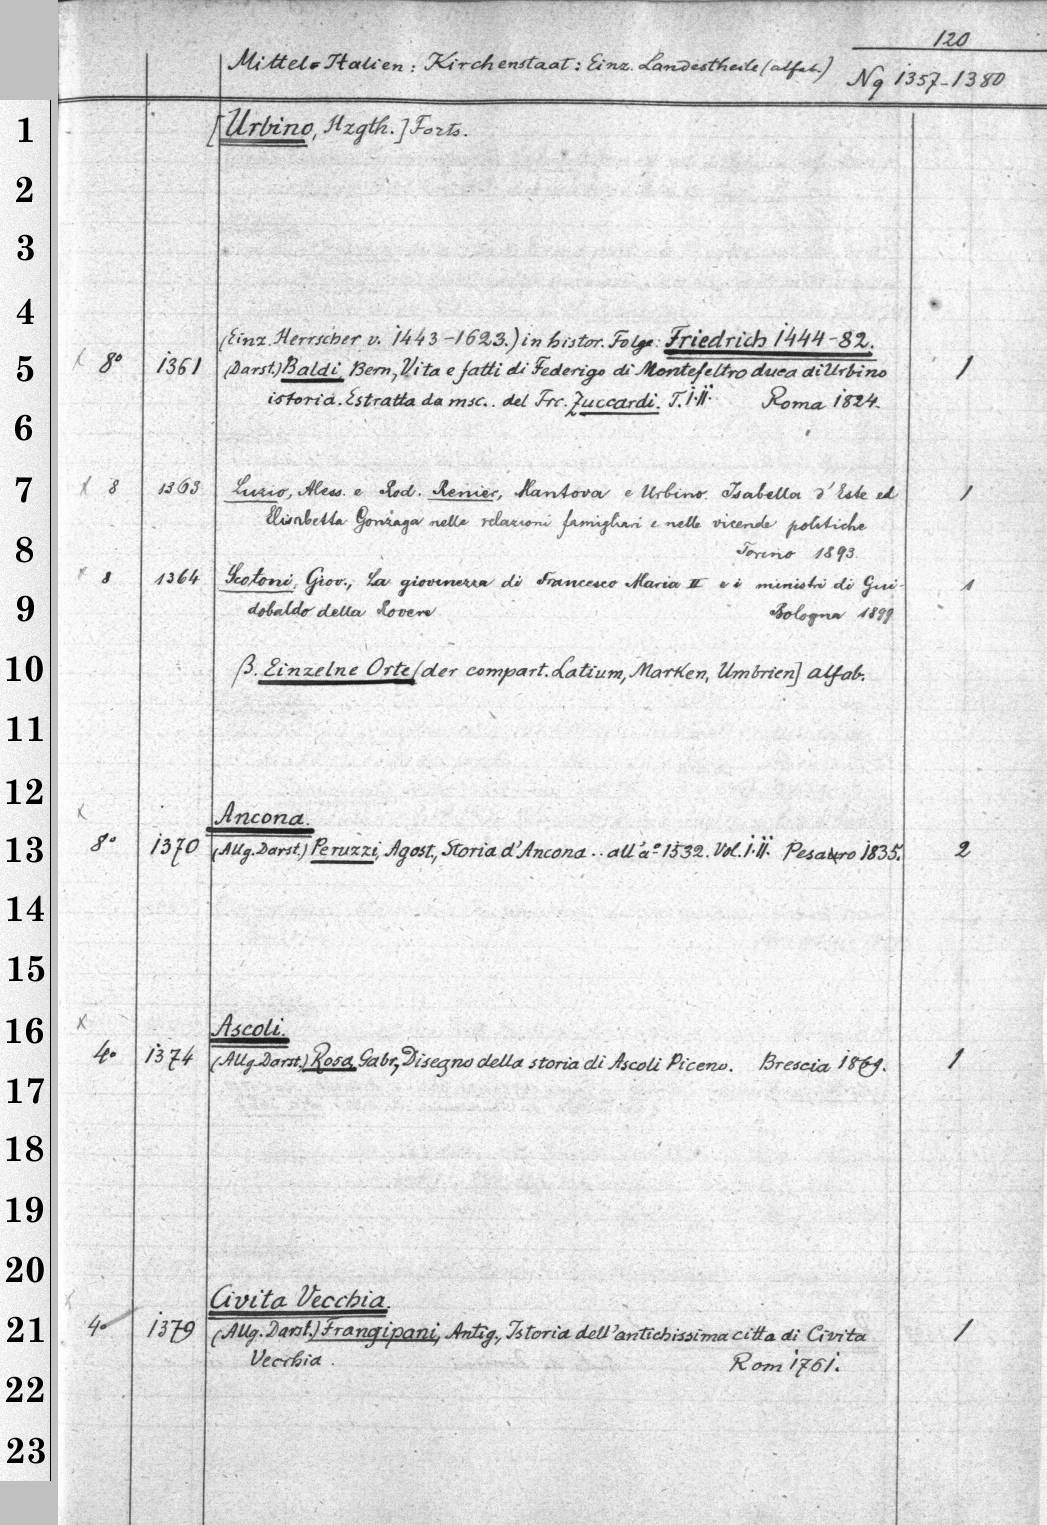 120
Mittel-Italien: Kirchenstaat: Einz. Landestheile (alfab.)
Nq 1357-1380
1
[Urbino, Hzgth.] Forts.
2
3
4
(Einz. Herrscher v. 1443-1623.) in histor. Folge: Friedrich 1444-82.
5 8° 1361 (Darst.) Baldi, Bern., Vita e fatti di Federigo di Montefeltro duca di Urbino 1
istoria. Estratta da msc.. del Frc. Zuccardi. T. I.II. Roma 1824.
6
7 x 8 1363 Luzio, Aless. e Rod. Renier, Mantova e Urbino. Isabella d'Este ed 1
Elisabetta Gonzaga nelle relazioni famigliari e nelle vicende politiche
8 Torino 1893.
x 8 1364 Scotoni, Giov., La giovinezza di Francesco Maria II e i ministri di Gui- 1
9 dobaldo della Rovere Bologna 1899
10 β. Einzelne Orte [der compart. Latium, Marken, Umbrien] alfab.
11
12
x Ancona.
13 8° 1370 (Allg. Darst.) Peruzzi, Agost., Storia d'Ancona .. all'a° 1532. Vol. I.II. Pesaro 1835. 2
14
15
16 x Ascoli.
4° 1374 (Allg. Darst.) Rosa, Gabr., Disegno della storia di Ascoli Piceno. Brescia 1869. 1
17
18
19
20
x Civita Vecchia.
21 4° 1379 (Allg. Darst.) Frangipani, Antig., Istoria dell'antichissima citta di Civita 1
Vecchia. Rom 1761.
22
23